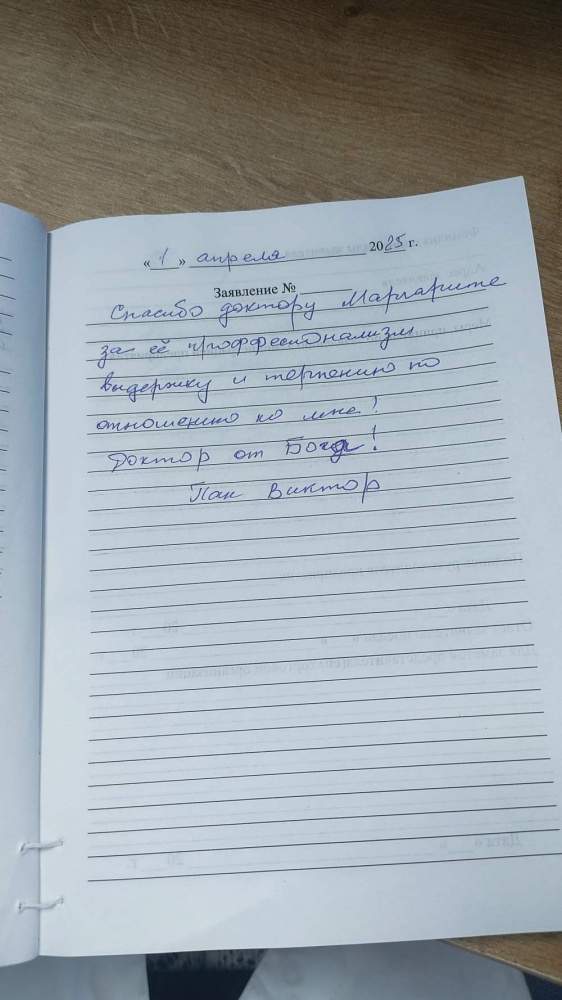 « 1 » апреля 2025 г.
Заявление №
Спасибо доктору Маргарите
за её проффесионализм
выдержку и терпению по
отношению ко мне!
Доктор от Бога!
Пак Виктор